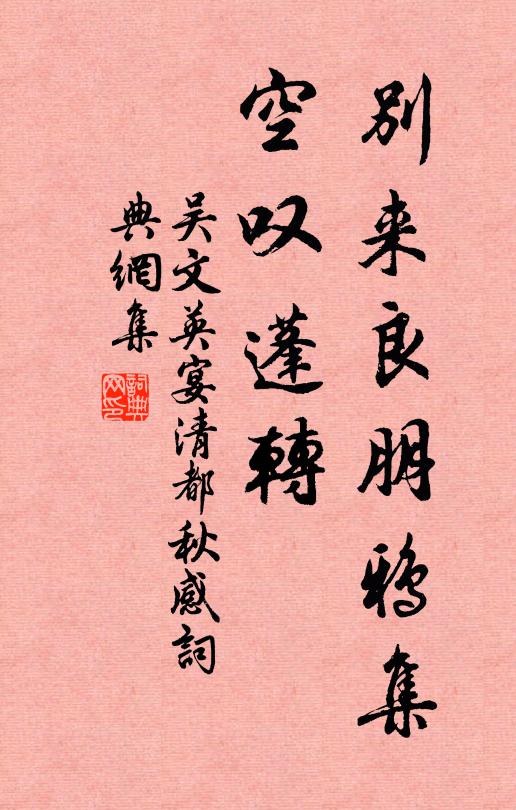 别来良朋鸦集
空叹蓬轉
吴文英宴清都秋感詞
典網集
詞典网印